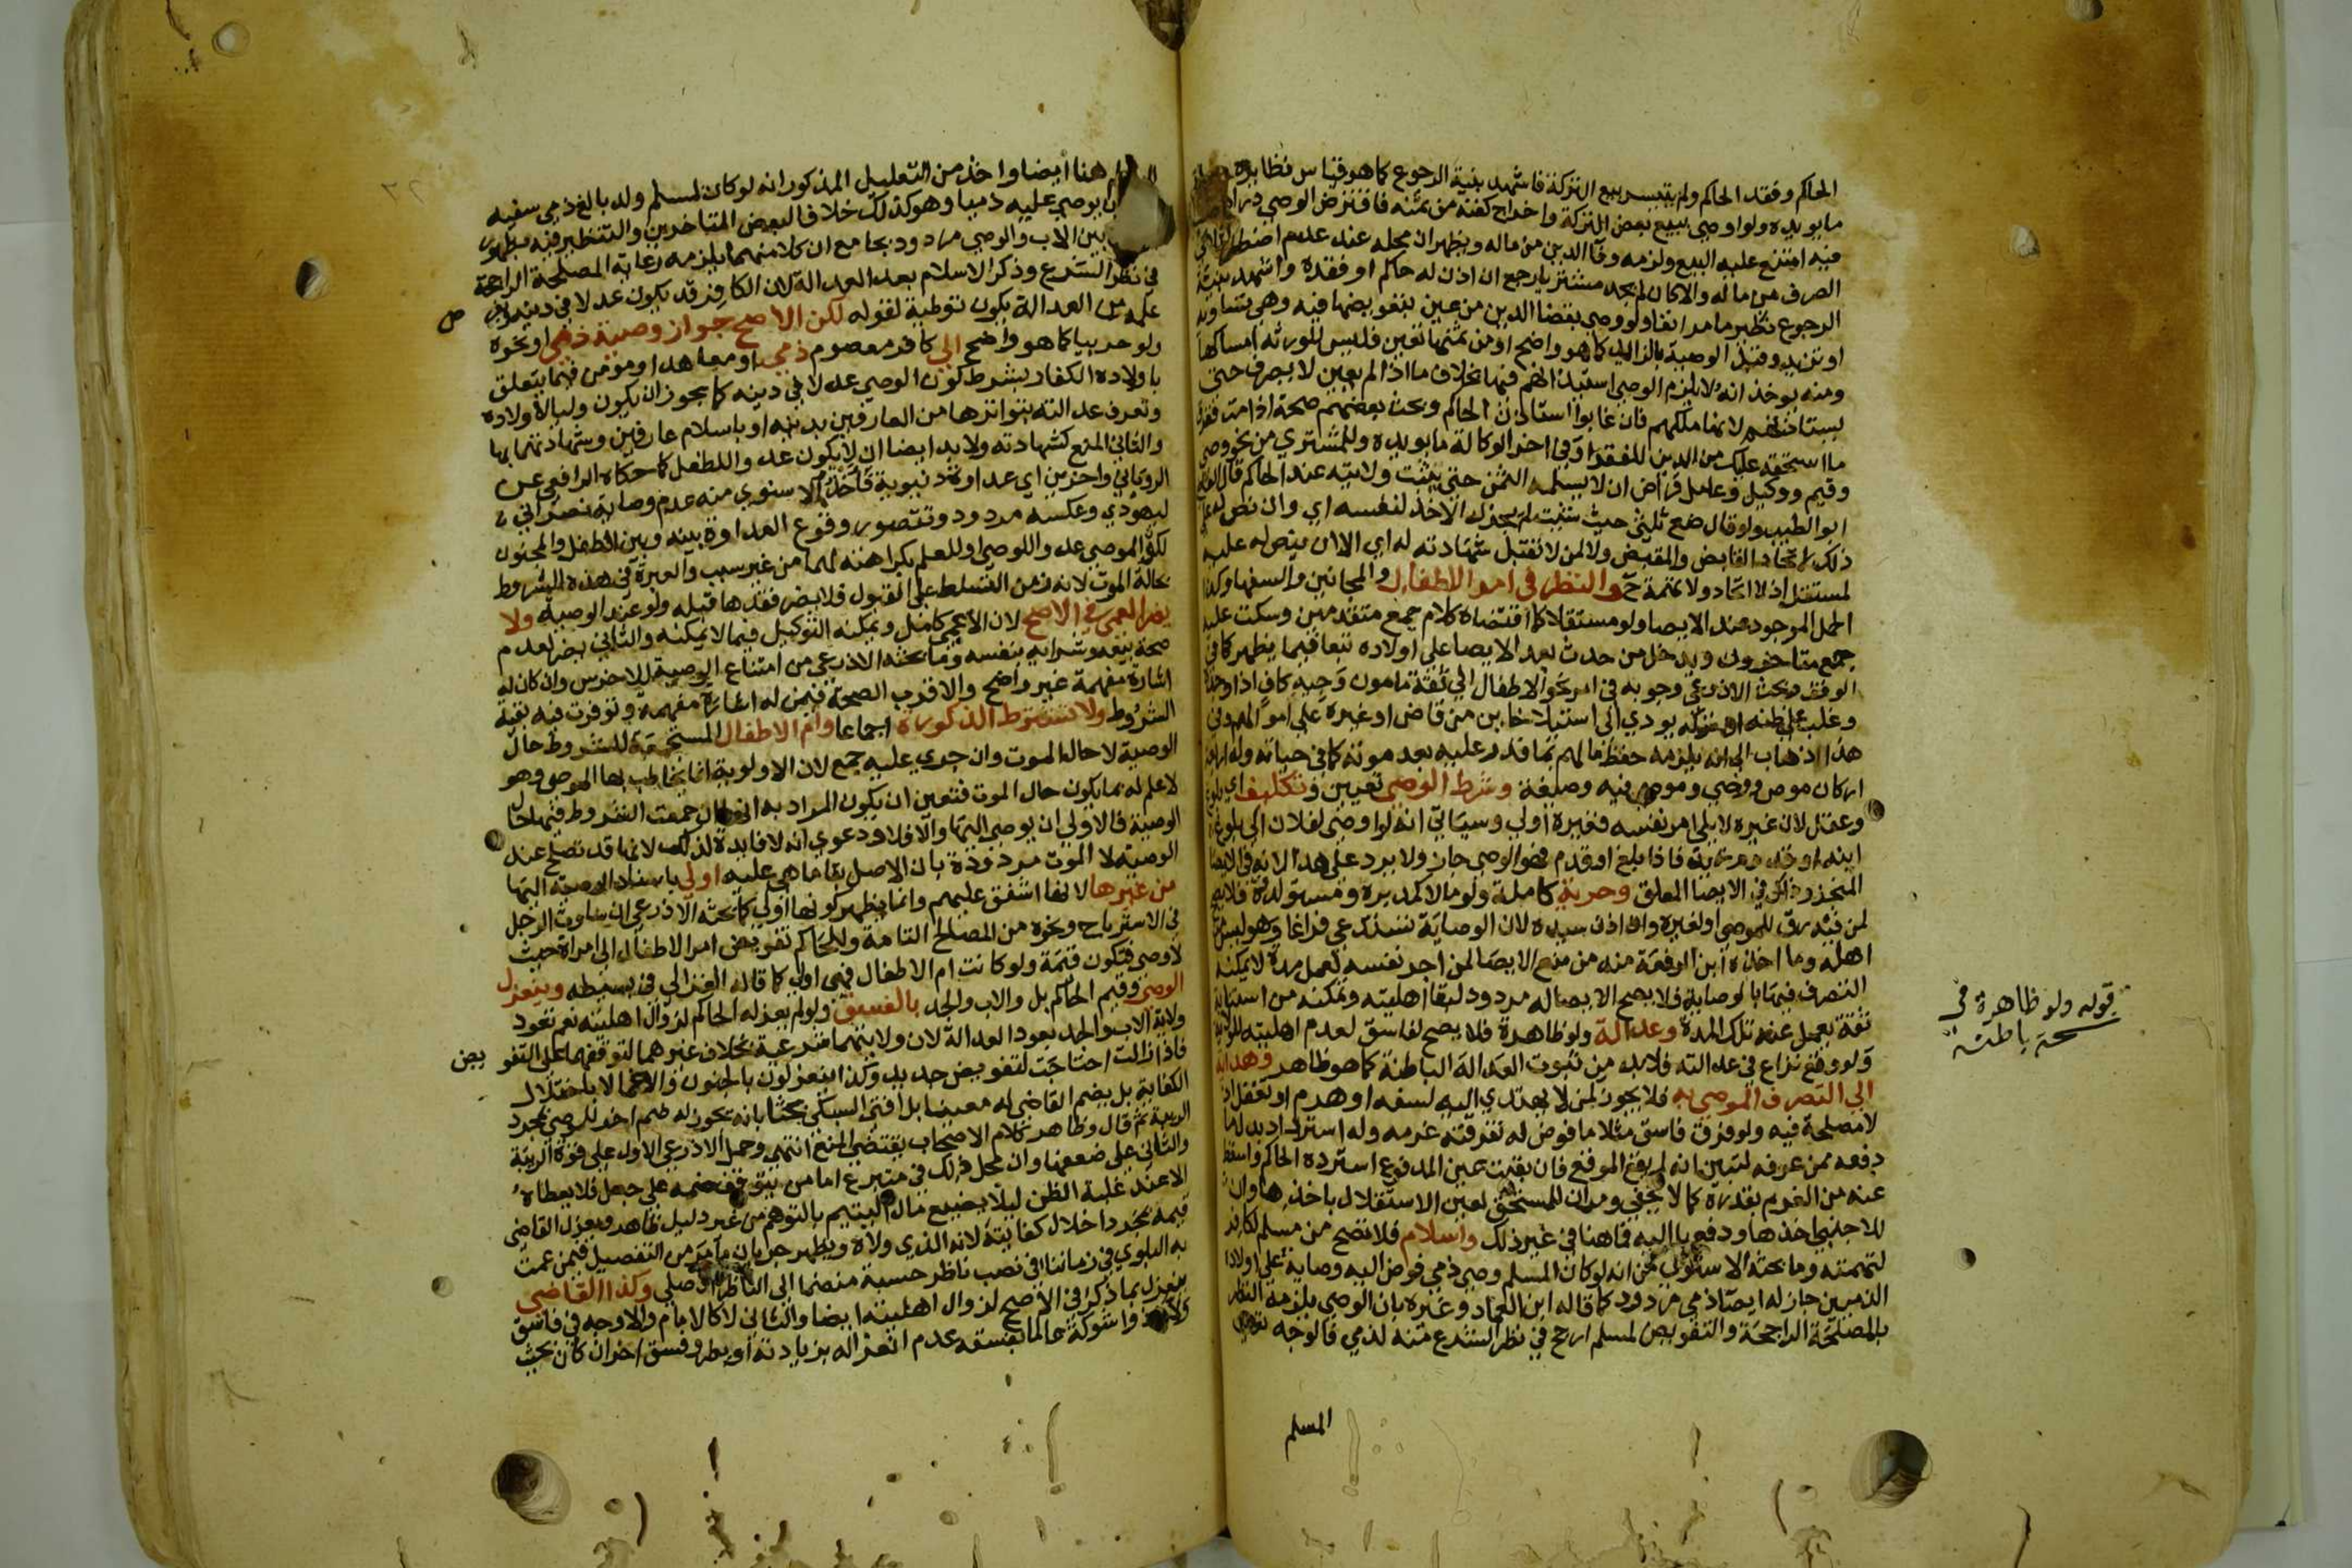 الحاكم وفقد الحاكم ولم يتيسر بيع التركة فاشهد بنية الرجوع كما هو قياس نظايره
ما يويده ولو اوصى ببيع بعض التركة واخراج كفنه من ثمنه فاقترض الوصي دراهم
فيه امتنع عليه البيع ولزمه وفا الدين من ماله ويظهر ان محله عند عدم اضطراره الى
الصرف من ماله والا كان لم يجد مشتريا رجع ان اذن له حاكم او فقده واشهد بنية
الرجوع نظير ما مر انفا ولو وصى بقضا الدين من عين بتعويضها فيه وهي تساويه
او تزيد وقبل الوصية بالزايد كما هو واضح او من ثمنها تعين فليس للورثة امساكها
ومنه يوخذ انه لا يلزم الوصي استيذانهم فيها بخلاف ما اذا لم يعين لا يتصرف حتى
يستاذنهم لانها ملكهم فان غابوا استاذن الحاكم وبحث بعضهم صحة اذا مت ففرق
ما استحقه عليك من الدين للفقرا وفي اخر الوكالة ما يويده وللمشتري من نحو وصي
وقيم ووكيل وعامل قراض ان لا يسلمه الثمن حتى تثبت ولايته عند الحاكم قال القاضي
ابو الطيب ولو قال ضع ثلثي حيث شئت لم يجز له الاخذ لنفسه اي وان نص له على
ذلك لاتحاد القابض والمقبض ولا لمن لا تقبل شهادته له اي الا ان ينص له عليه
لمستقل اذ لا اتحاد ولا تهمة ح والنظر في امر الاطفال والمجانين والسفها وكذا
الحمل الموجود عند الايصا ولو مستقلا كما اقتضاه كلام جمع متقدمين وسكت عليه
جمع متاخرون ويدخل من حدث بعد الايصا على اولاده تبعا فيما يظهر كما في
الوقف وبحث الاذرعي وجوبه في امر نحو الاطفال الى ثقة مامون وجيه كاف اذا وجده
وغلب على ظنه ان تركه يودي الى استيلا خاين من قاض او غيره على اموالهم وفي
هذا اذهاب الى انه يلزمه حفظ مالهم بما قدر عليه بعد موته كما في حياته وله اربعة
اركان موص ووصي وموصى فيه وصيغة وشرط الوصي تعيين وتكليف اي بلوغ
وعقل لان غيره لا يلي امر نفسه فغيره اولى وسياتي انه لو اوصى لفلان الى بلوغ
ابنه او قدوم زيد فاذا بلغ او قدم فهو الوصي جاز ولا يرد على هذا لانه في الايصا
المنجز وذاك في الايصا المعلق وحرية كاملة ولو مالا كمدبرة ومستولدة فلا يصح
لمن فيه رق للموصي او لغيره وان اذن سيده لان الوصاية تستدعي فراغا وهو ليس من
اهله وما اخذه ابن الرفعة منه من منع الايصا لمن اجر نفسه لعمل مدة لا يمكنه
التصرف فيها بالوصاية فلا يصح الايصا له مردود لبقا اهليته وتمكنه من استنابة
ثقة يعمل عنه تلك المدة وعدالة ولو ظاهرة فلا يصح لفاسق لعدم اهليته للولاية
ولو وقع نزاع في عدالته فلا بد من ثبوت العدالة الباطنة كما هو ظاهر وهداية
الى التصرف الموصى به فلا يجوز لمن لا يهتدي اليه لسفه او هرم او تغفل اذ
لا مصلحة فيه ولو فرق فاسق مثلا ما فوض له تفرقته غرمه وله استرداد بدل ما
دفعه ممن عرفه لتبين انه لم يقع الموقع فان بقيت عين المدفوع استرده الحاكم واسقط
عنه من الغرم بقدره كما لا يخفى ومر ان للمستحق لعين الاستقلال باخذها وان
للاجنبي اخذها ودفعها اليه فما هنا في غير ذلك واسلام فلا تصح من مسلم لكافر
لتهمته وما بحثه الاسنوي من انه لو كان المسلم وصي ذمي فوض اليه وصاية على اولاد
الذميين جاز له ايصا ذمي مردود كما قاله ابن العماد وغيره بان الوصي يلزمه النظر
بالمصلحة الراجحة والتفويض لمسلم ارجح في نظر الشرع منه لذمي فالوجه تعين
المسلم
قوله ولو ظاهرة في
نسخة باطنة
هنا ايضا واخذ من التعليل المذكور انه لو كان لمسلم ولد بالغ ذمي سفيه
ان يوصي عليه ذميا وهو كذلك خلافا لبعض المتاخرين والتنظير فيه بظهور
بين الاب والوصي مردود بجامع ان كلا منهما يلزمه رعاية المصلحة الراجحة
في نظر الشرع وذكر الاسلام بعد العدالة لان الكافر قد يكون عدلا في دينه
علمه من العدالة يكون توطية لقوله لكن الاصح جواز وصية ذمي او نحوه
ولو حربيا كما هو واضح الى كافر معصوم ذمي او معاهد او مومن فيما يتعلق
باولاده الكفار بشرط كون الوصي عدلا في دينه كما يجوز ان يكون وليا لاولاده
وتعرف عدالته بتواترها من العارفين بدينه او باسلام عارفين وشهادتهما بها
والثاني المنع كشهادته ولا بد ايضا ان لا يكون عدوا للطفل كما حكاه الرافعي عن
الروياني واخرين اي عداوة دنيوية فاخذ الاسنوي منه عدم وصاية نصراني
ليهودي وعكسه مردود وتتصور وقوع العداوة بينه وبين الطفل والمجنون
لكون الموصي عدوا للوصي او للعلم بكراهته لهما من غير سبب والعبرة في هذه الشروط
بحالة الموت لانه زمن التسلط على القبول فلا يضر فقدها قبله ولو عند الوصية ولا
يضر العمى في الاصح لان الاعمى كامل ويمكنه التوكيل فيما لا يمكنه والثاني يضر لعدم
صحة بيعه وشرايه بنفسه وما بحثه الاذرعي من امتناع الوصية للاخرس وان كان له
اشارة مفهمة غير واضح والاقرب الصحة فيمن له اشارة مفهمة وتوفرت فيه بقية
الشروط ولا تشترط الذكورة اجماعا وام الاطفال المستجمعة للشروط حال
الوصية لا حال الموت وان جرى عليه جمع لان الاولوية انما يخاطب بها الموصي وهو
لا علم له بما يكون حال الموت فتعين ان يكون المراد به انها ان جمعت الشروط فيها حال
الوصية فالاولى ان يوصي اليها والا فلا ودعوى انه لا فايدة لذلك لانها قد تصلح عند
الوصية لا الموت مردودة بان الاصل بقا ما هي عليه اولى باسناد الوصية اليها
من غيرها لانها اشفق عليهم وانما يظهر كونها اولى كما بحثه الاذرعي ان ساوت الرجل
في الاسترباح ونحوه من المصالح التامة وللحاكم تفويض امر الاطفال الى امراة حيث
لا وصي فتكون قيمة ولو كانت ام الاطفال فهي اولى كما قاله الغزالي في بسيطه وينعزل
الوصي وقيم الحاكم بل والاب والجد بالفسق ولو لم يعزله الحاكم لزوال اهليته نعم تعود
ولاية الاب والجد بعود العدالة لان ولايتهما شرعية بخلاف غيرهما لتوقفها على التفويض
فاذا زالت احتاجت لتفويض جديد وكذا ينعزلون بالجنون والاغما لا باختلال
الكفاية بل يضم القاضي له معينا بل افتى السبكي بحثا بانه يجوز له ضم اخر للوصي بمجرد
الريبة ثم قال وظاهر كلام الاصحاب يقتضي المنع انتهى وحمل الاذرعي الاول على قوة الريبة
والثاني على ضعفها وان محل ذلك في متبرع اما من يتوقف ضمه على جعل فلا يعطاه
الا عند غلبة الظن ليلا يضيع مال اليتيم بالتوهم من غير دليل ظاهر ويعزل القاضي
قيمه بمجرد اختلال كفايته لانه الذي ولاه ويظهر جريان ما مر من التفصيل فيمن عمت
به البلوى في زماننا في نصب ناظر حسبة منضما الى الناظر الاصلي وكذا القاضي
ينعزل بما ذكر في الاصح لزوال اهليته ايضا والثاني لا كالامام والاوجه في فاسق
ولاه ذوا شوكة عالما بفسقه عدم انعزاله بزيادته او بطرو فسق اخر ان كان بحيث